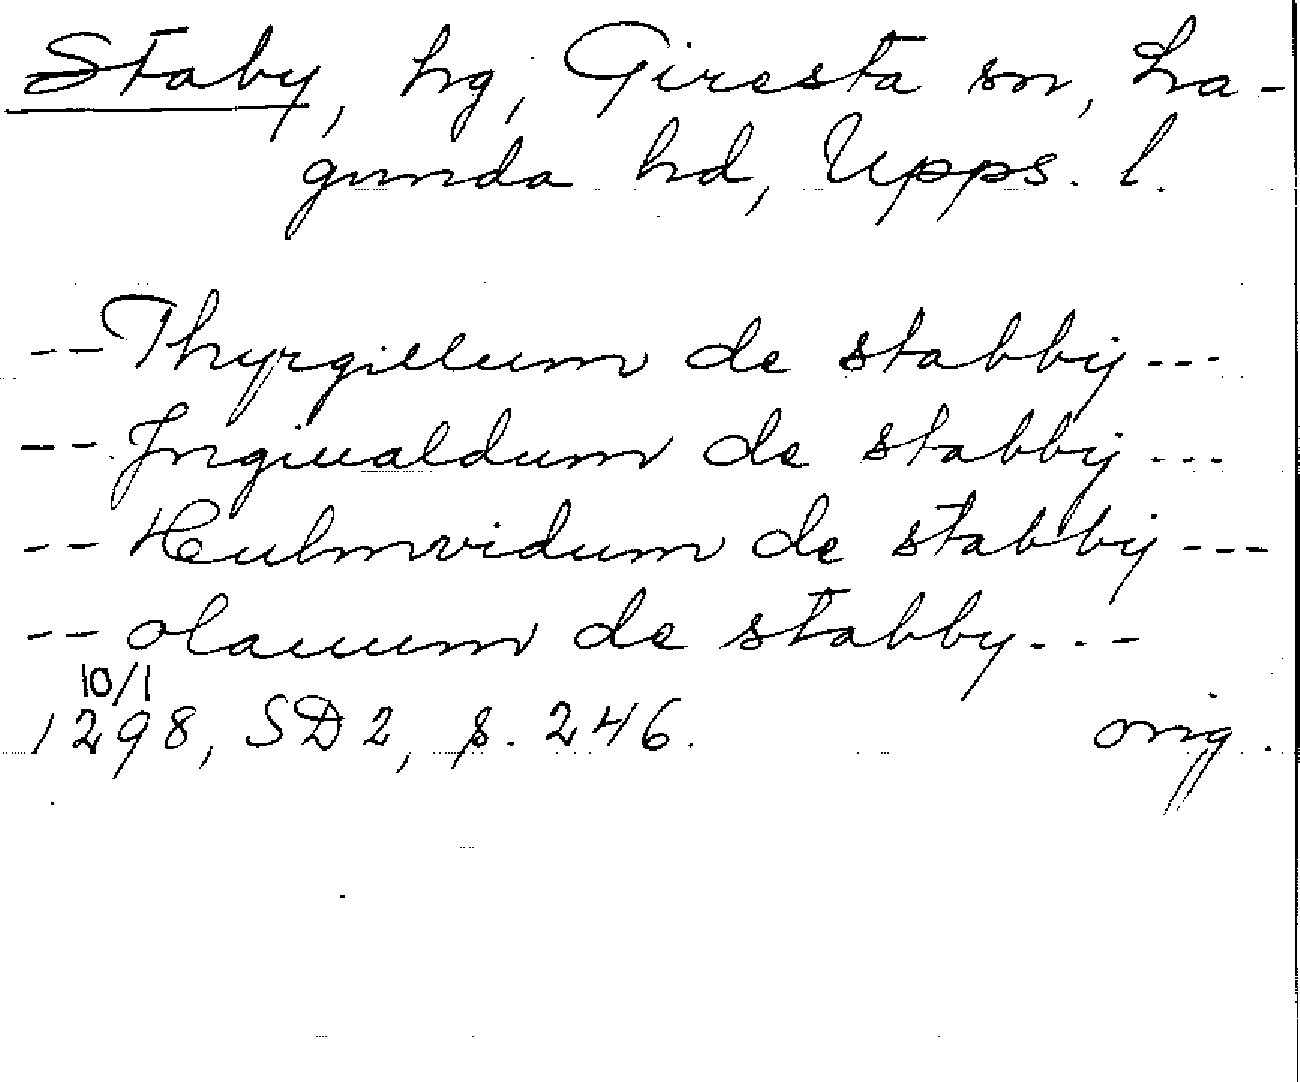 Staby, hg, Giresta sn, La-
gunda hd, Upps. l.
-- Thyrgillum de stabbÿ ---
-- Jngiualdum de stabbÿ ---
-- Heulmvidum de stabbÿ ---
-- olauum de stabby ---
10/1
1298, SD 2, s. 246. orig.